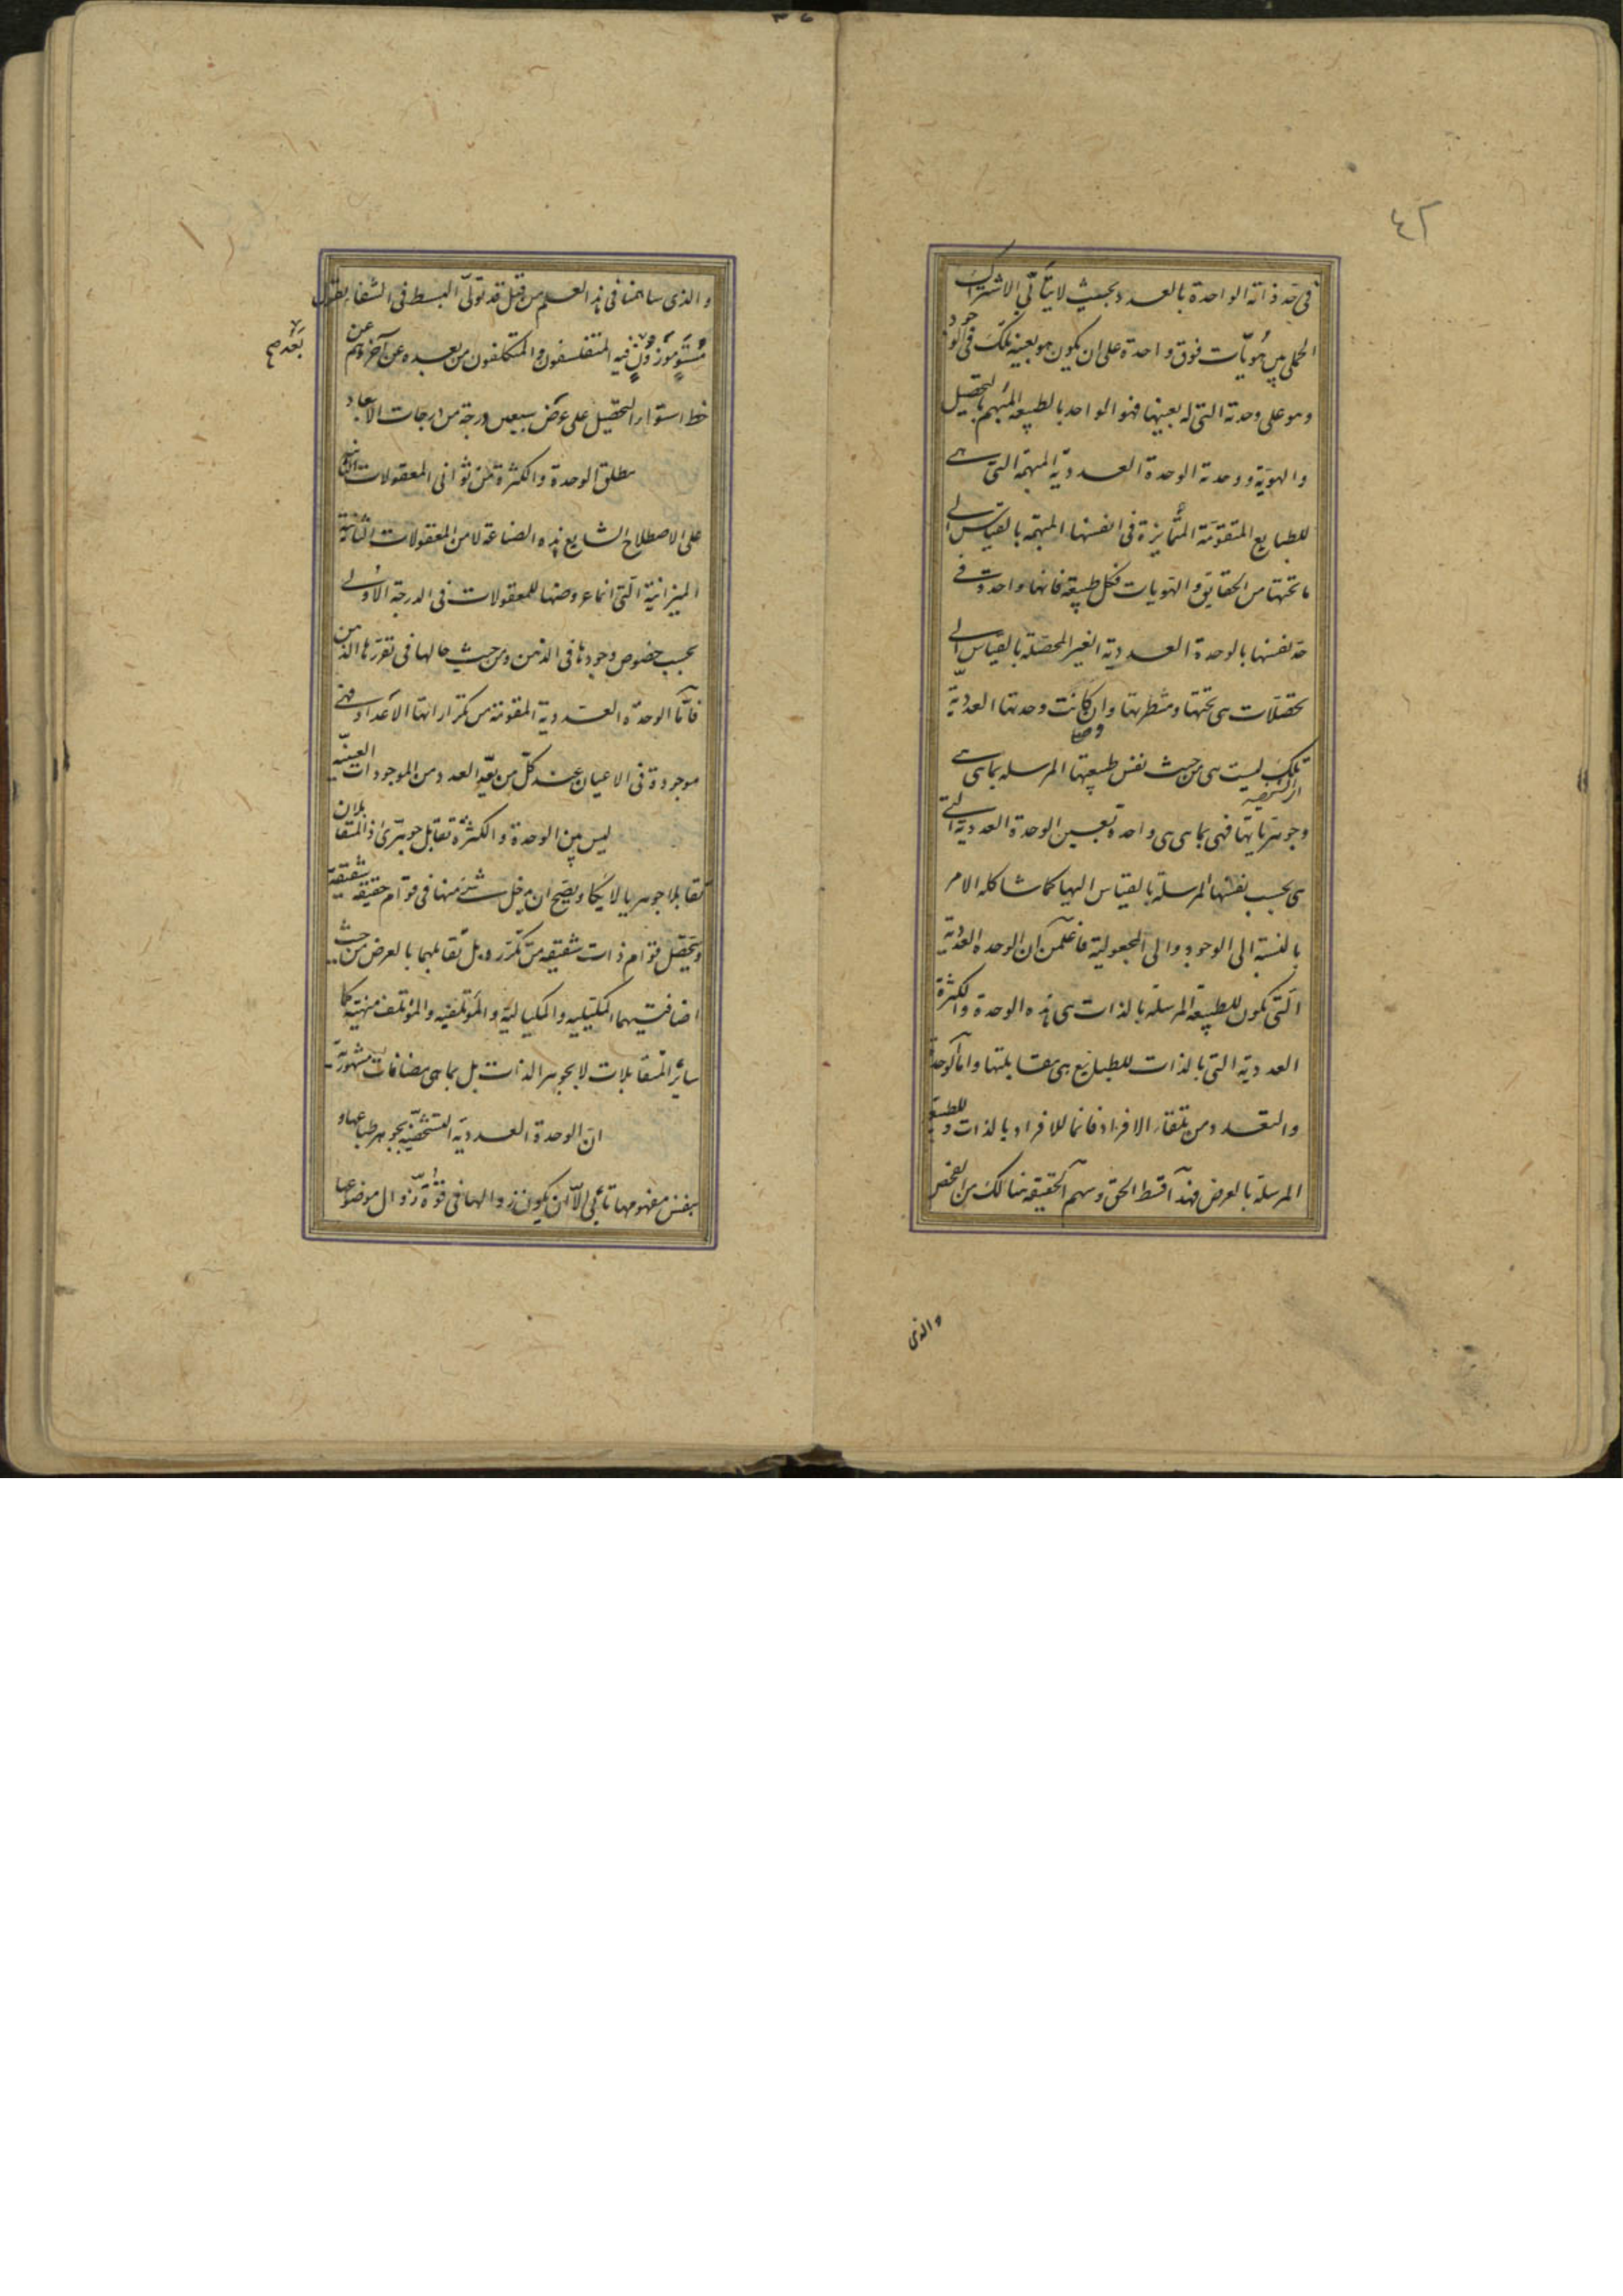 ٤٢
فى حد ذاته الواحدة بالعدد بحيث لا يتأبى الاشتراك
الحملى بين هويات فوق واحدة على ان يكون هو بعينه تلك فى الوجود
وهو على وحدته التى له بعينها فهو الواحد بالطبيعة المبهم بالتحصيل
والهوية ووحدته الوحدة العددية المبهمة التى هى
للطبايع المتقومة المتمايزة فى انفسها المبهمة بالقياس الى
ما تحتها من الحقايق والهويات فكل طبيعة فانها واحدة فى
حد نفسها بالوحدة العددية الغير المحصلة بالقياس الى
تحصلات هى تحتها ومنظرتها وان كانت وحدتها العددية
تلك ليست هى من حيث نفس طبيعتها المرسلة بما هى هى
وجوهرياتها فهى بما هى هى واحدة بعين الوحدة العددية التى
هى بحسب نفسها المرسلة بالقياس اليها كما شاكله الامر
بالنسبة الى الوجود والى المجعولية فاعلمن ان الوحدة العددية
التى تكون للطبيعة المرسلة بالذات هى هذه الوحدة والكثرة
العددية التى بالذات للطبايع هى مقابلتها واما الوحدة
والتعدد من تلقاء الافراد فانما للافراد بالذات وللطبيعة
المرسلة بالعرض فهذا قسط الحق وسهم الحقيقة هنالك من الفحص
والذى
والذى ساهمنا فى هذا العلم من قبل قد تولى البسط فى الشفا بقول
مستو موزون فيه المتفلسفون والمتكلفون من بعده عن آخرهم عن
بعد صح
خط استواء التحصيل على عرض سبعين درجة من درجات الابعاد
مطلق الوحدة والكثرة من ثوانى المعقولات
على الاصطلاح الشايع بهذه الصناعة لا من المعقولات الثانية
الميزانية التى انما عروضها للمعقولات فى الدرجة الاولى
بحسب خصوص وجودها فى الذهن ومن حيث حالها فى تقررها الذهنى
فاما الوحدة العددية المقومة من تكراراتها الاعداد فهى
موجودة فى الاعيان عند كل من يعد العدد من الموجودات العينية
ليس بين الوحدة والكثرة تقابل جوهرى اذ المتقابلان
تقابلا جوهريا لا يكاد يصح ان يدخل شئ منها فى قوام حقيقة شقيقة
ويتحصل قوام ذات شقيقه من تكرره بل تقابلهما بالعرض من حيث
اضافتيهما المكيلية والمكيالية والمؤتلفية والمؤتلف منهية كما
ساير المتقابلات لا بجوهر الذات بل بما هى مضافات مشهورية
ان الوحدة العددية الشخصية بجوهر طباعها و
بنفس مفهومها تأبى الا ان يكون زوالها فى قوة زوال موضوعها